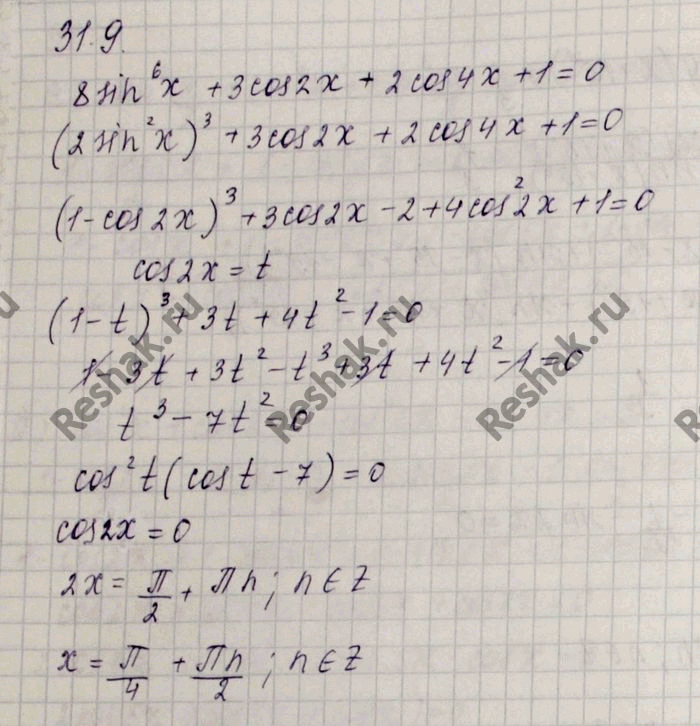 31.9.
8sin⁶x + 3cos2x + 2cos4x + 1 = 0
(2sin²x)³ + 3cos2x + 2cos4x + 1 = 0
(1 - cos2x)³ + 3cos2x - 2 + 4cos²2x + 1 = 0
cos2x = t
(1 - t)³ + 3t + 4t² - 1 = 0
1 - 3t + 3t² - t³ + 3t + 4t² - 1 = 0
t³ - 7t² = 0
cos²t(cost - 7) = 0
cos2x = 0
2x = π/2 + πn; n ∈ Z
x = π/4 + πn/2; n ∈ Z
Reshak.ru
Reshak.ru
Reshak.ru